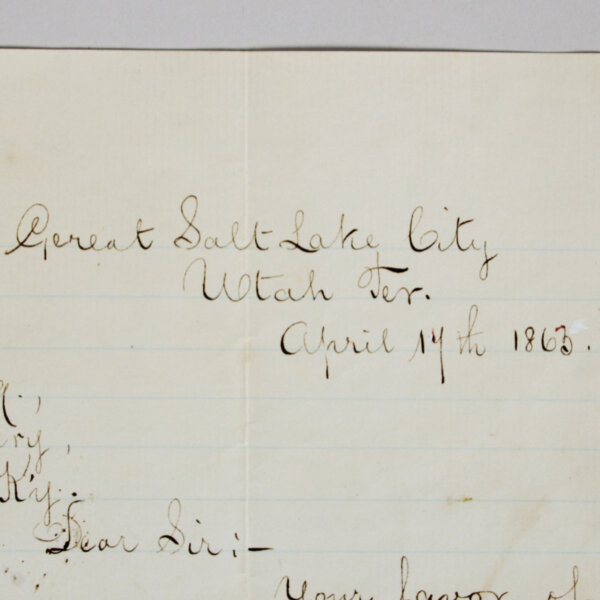 Great Salt Lake City
Utah Ter.
April 17th 1863.
Ky.
Dear Sir:-
Your favor of